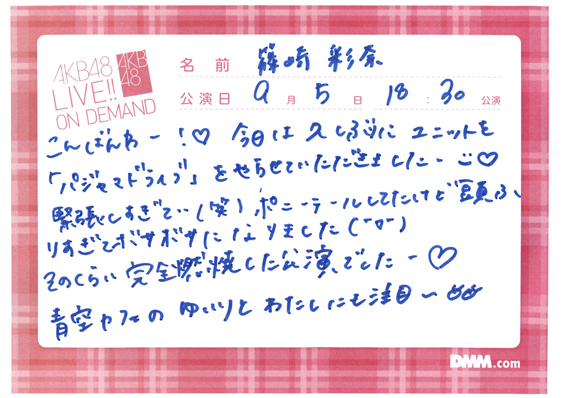 AKB48
LIVE!!
ON DEMAND
AKB
48
名前 篠崎彩奈
公演日 9月5日 18:30公演
こんばんわー!♡ 今日は久しぶりにユニットを
「パジャマドライブ」をやらせていただきましたー♡
緊張しすぎてい(笑) ポニーテールしてたけど頭ふ
りすぎてボサボサになりました(ーωー)
そのくらい完全燃焼した公演でしたー♡
青空カフェのゆいりとわたしにも注目〜
DMM.com